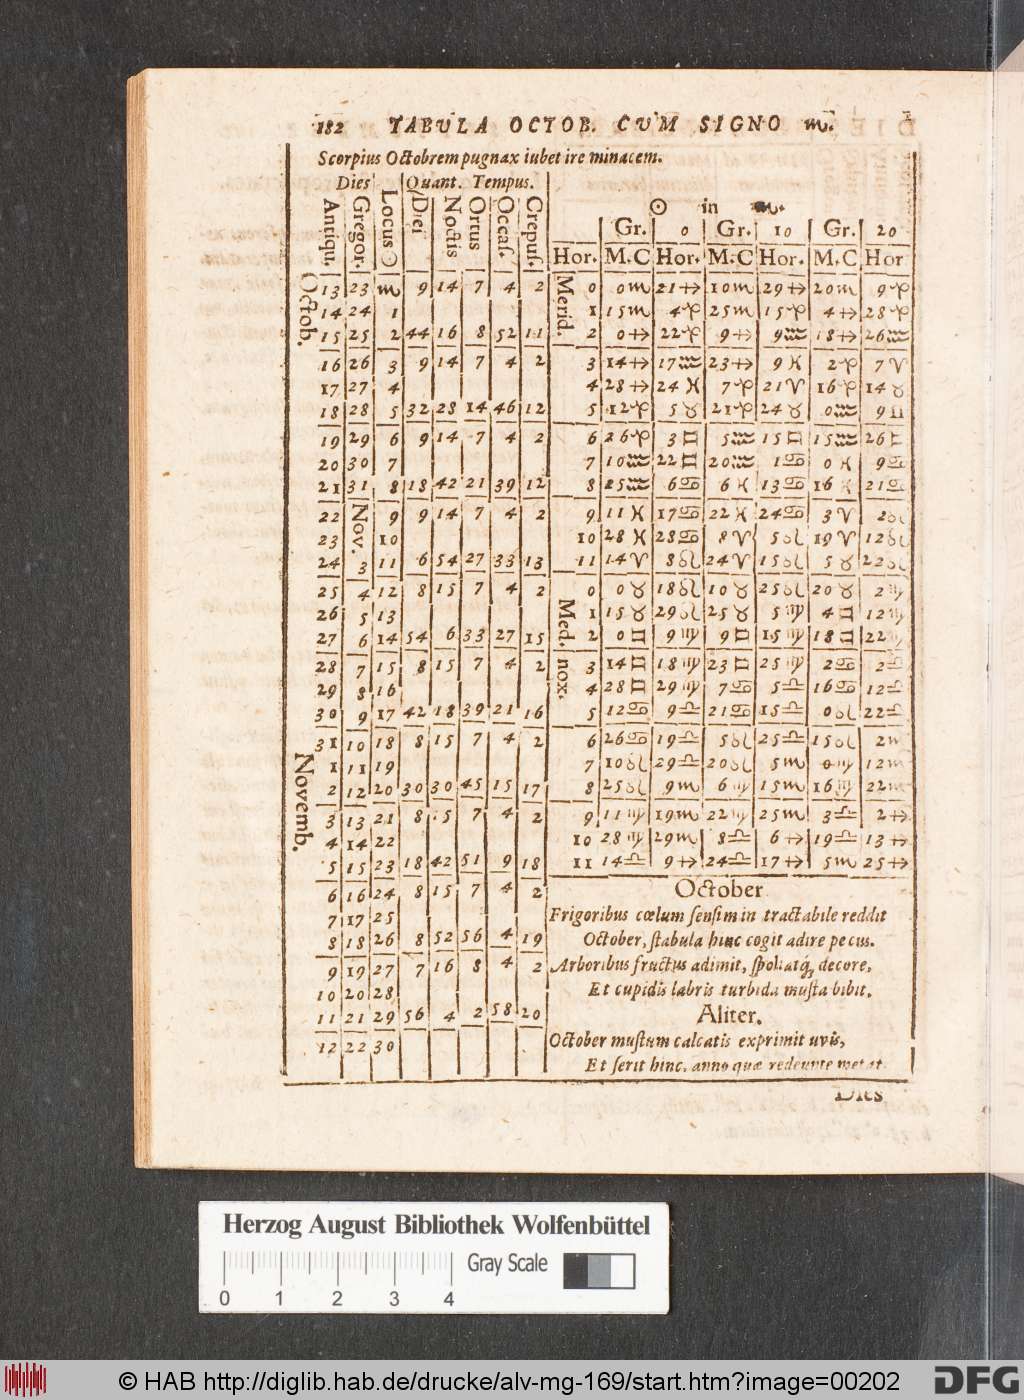 182 TABULA OCTOB. CUM SIGNO ♏.
Scorpius Octobrem pugnax iubet ire minacem.
Dies Quant. Tempus.
Antiqu. Gregor. Locus ☉ Diei Noctis Ortus Occaſ. Crepuſ.
Octob.
13 23 ♏ 9 14 7 4 2
14 24 1
15 25 2 44 16 8 52 11
16 26 3 9 14 7 4 2
17 27 4
18 28 5 32 28 14 46 12
19 29 6 9 14 7 4 2
20 30 7
21 31 8 18 42 21 39 12
22 Nov. 9 9 14 7 4 2
23 10
24 3 11 6 54 27 33 13
25 4 12 8 15 7 4 2
26 5 13
27 6 14 54 6 33 27 15
28 7 15 8 15 7 4 2
29 8 16
30 9 17 42 18 39 21 16
31 10 18 8 15 7 4 2
Novemb.
1 11 19
2 12 20 30 30 45 15 17
3 13 21 8 15 7 4 2
4 14 22
5 15 23 18 42 51 9 18
6 16 24 8 15 7 4 2
7 17 25
8 18 26 8 52 56 4 19
9 19 27 7 16 8 4 2
10 20 28
11 21 29 56 4 2 58 20
12 22 30
☉ in ♏.
Gr. 0 Gr. 10 Gr. 20
Hor. M.C Hor. M.C Hor. M.C Hor
Merid.
0 0♏ 21♐ 10♏ 29♐ 20♏ 9♑
1 15♏ 4♑ 25♏ 15♑ 4♐ 28♑
2 0♐ 22♑ 9♐ 9♒ 18♐ 26♒
3 14♐ 17♒ 23♐ 9♓ 2♑ 7♈
4 28♐ 24♓ 7♑ 21♈ 16♑ 14♉
5 12♑ 5♉ 21♑ 24♉ 0♒ 9♊
6 26♑ 3♊ 5♒ 15♊ 15♒ 26♊
7 10♒ 22♊ 20♒ 1♋ 0♓ 9♋
8 25♒ 6♋ 6♓ 13♋ 16♓ 21♋
9 11♓ 17♋ 22♓ 24♋ 3♈ 2♌
10 28♓ 28♋ 8♈ 5♌ 19♈ 12♌
11 14♈ 8♌ 24♈ 15♌ 5♉ 22♌
Med. nox.
0 0♉ 18♌ 10♉ 25♌ 20♉ 2♍
1 15♉ 29♌ 25♉ 5♍ 4♊ 12♍
2 0♊ 9♍ 9♊ 15♍ 18♊ 22♍
3 14♊ 18♍ 23♊ 25♍ 2♋ 2♎
4 28♊ 29♍ 7♋ 5♎ 16♋ 12♎
5 12♋ 9♎ 21♋ 15♎ 0♌ 22♎
6 26♋ 19♎ 5♌ 25♎ 15♌ 2♏
7 10♌ 29♎ 20♌ 5♏ 0♍ 12♏
8 25♌ 9♏ 6♍ 15♏ 16♍ 22♏
9 11♍ 19♏ 22♍ 25♏ 3♎ 2♐
10 28♍ 29♏ 8♎ 6♐ 19♎ 13♐
11 14♎ 9♐ 24♎ 17♐ 5♏ 25♐
October
Frigoribus cœlum ſenſim in tractabile reddit
October, ſtabula hinc cogit adire pecus.
Arboribus fructus adimit, ſpoliatq́, decore,
Et cupidis labris turbida muſta bibit.
Aliter.
October muſtum calcatis exprimit uvis,
Et ſerit hinc, anno quæ redeunte metat.
Dies
Herzog August Bibliothek Wolfenbüttel
Gray Scale
0 1 2 3 4
© HAB http://diglib.hab.de/drucke/alv-mg-169/start.htm?image=00202
DFG